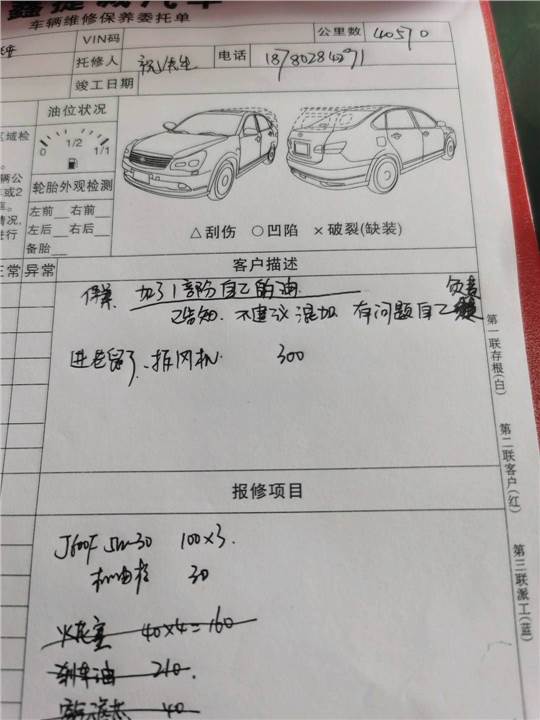 鑫捷诚汽车
车辆维修保养委托单
VIN码
公里数 40570
托修人
电话 18780284291
竣工日期
油位状况
0 1/2 1/1
轮胎外观检测
左前 右前
左后 右后
备胎
△刮伤 ○凹陷 ×破裂(缺装)
区域检
辆公
或2
情况,
进行
正常 异常
客户描述
保养 加了1部分自己的油
已告知 不建议混加 有问题自己负责
进老鼠了、拆风机 300
报修项目
J600F 5W-30 100×3
机油格 30
火花塞 40×4=160
刹车油 210
40
第一联存根(白)
第二联客户(红)
第三联派工(蓝)